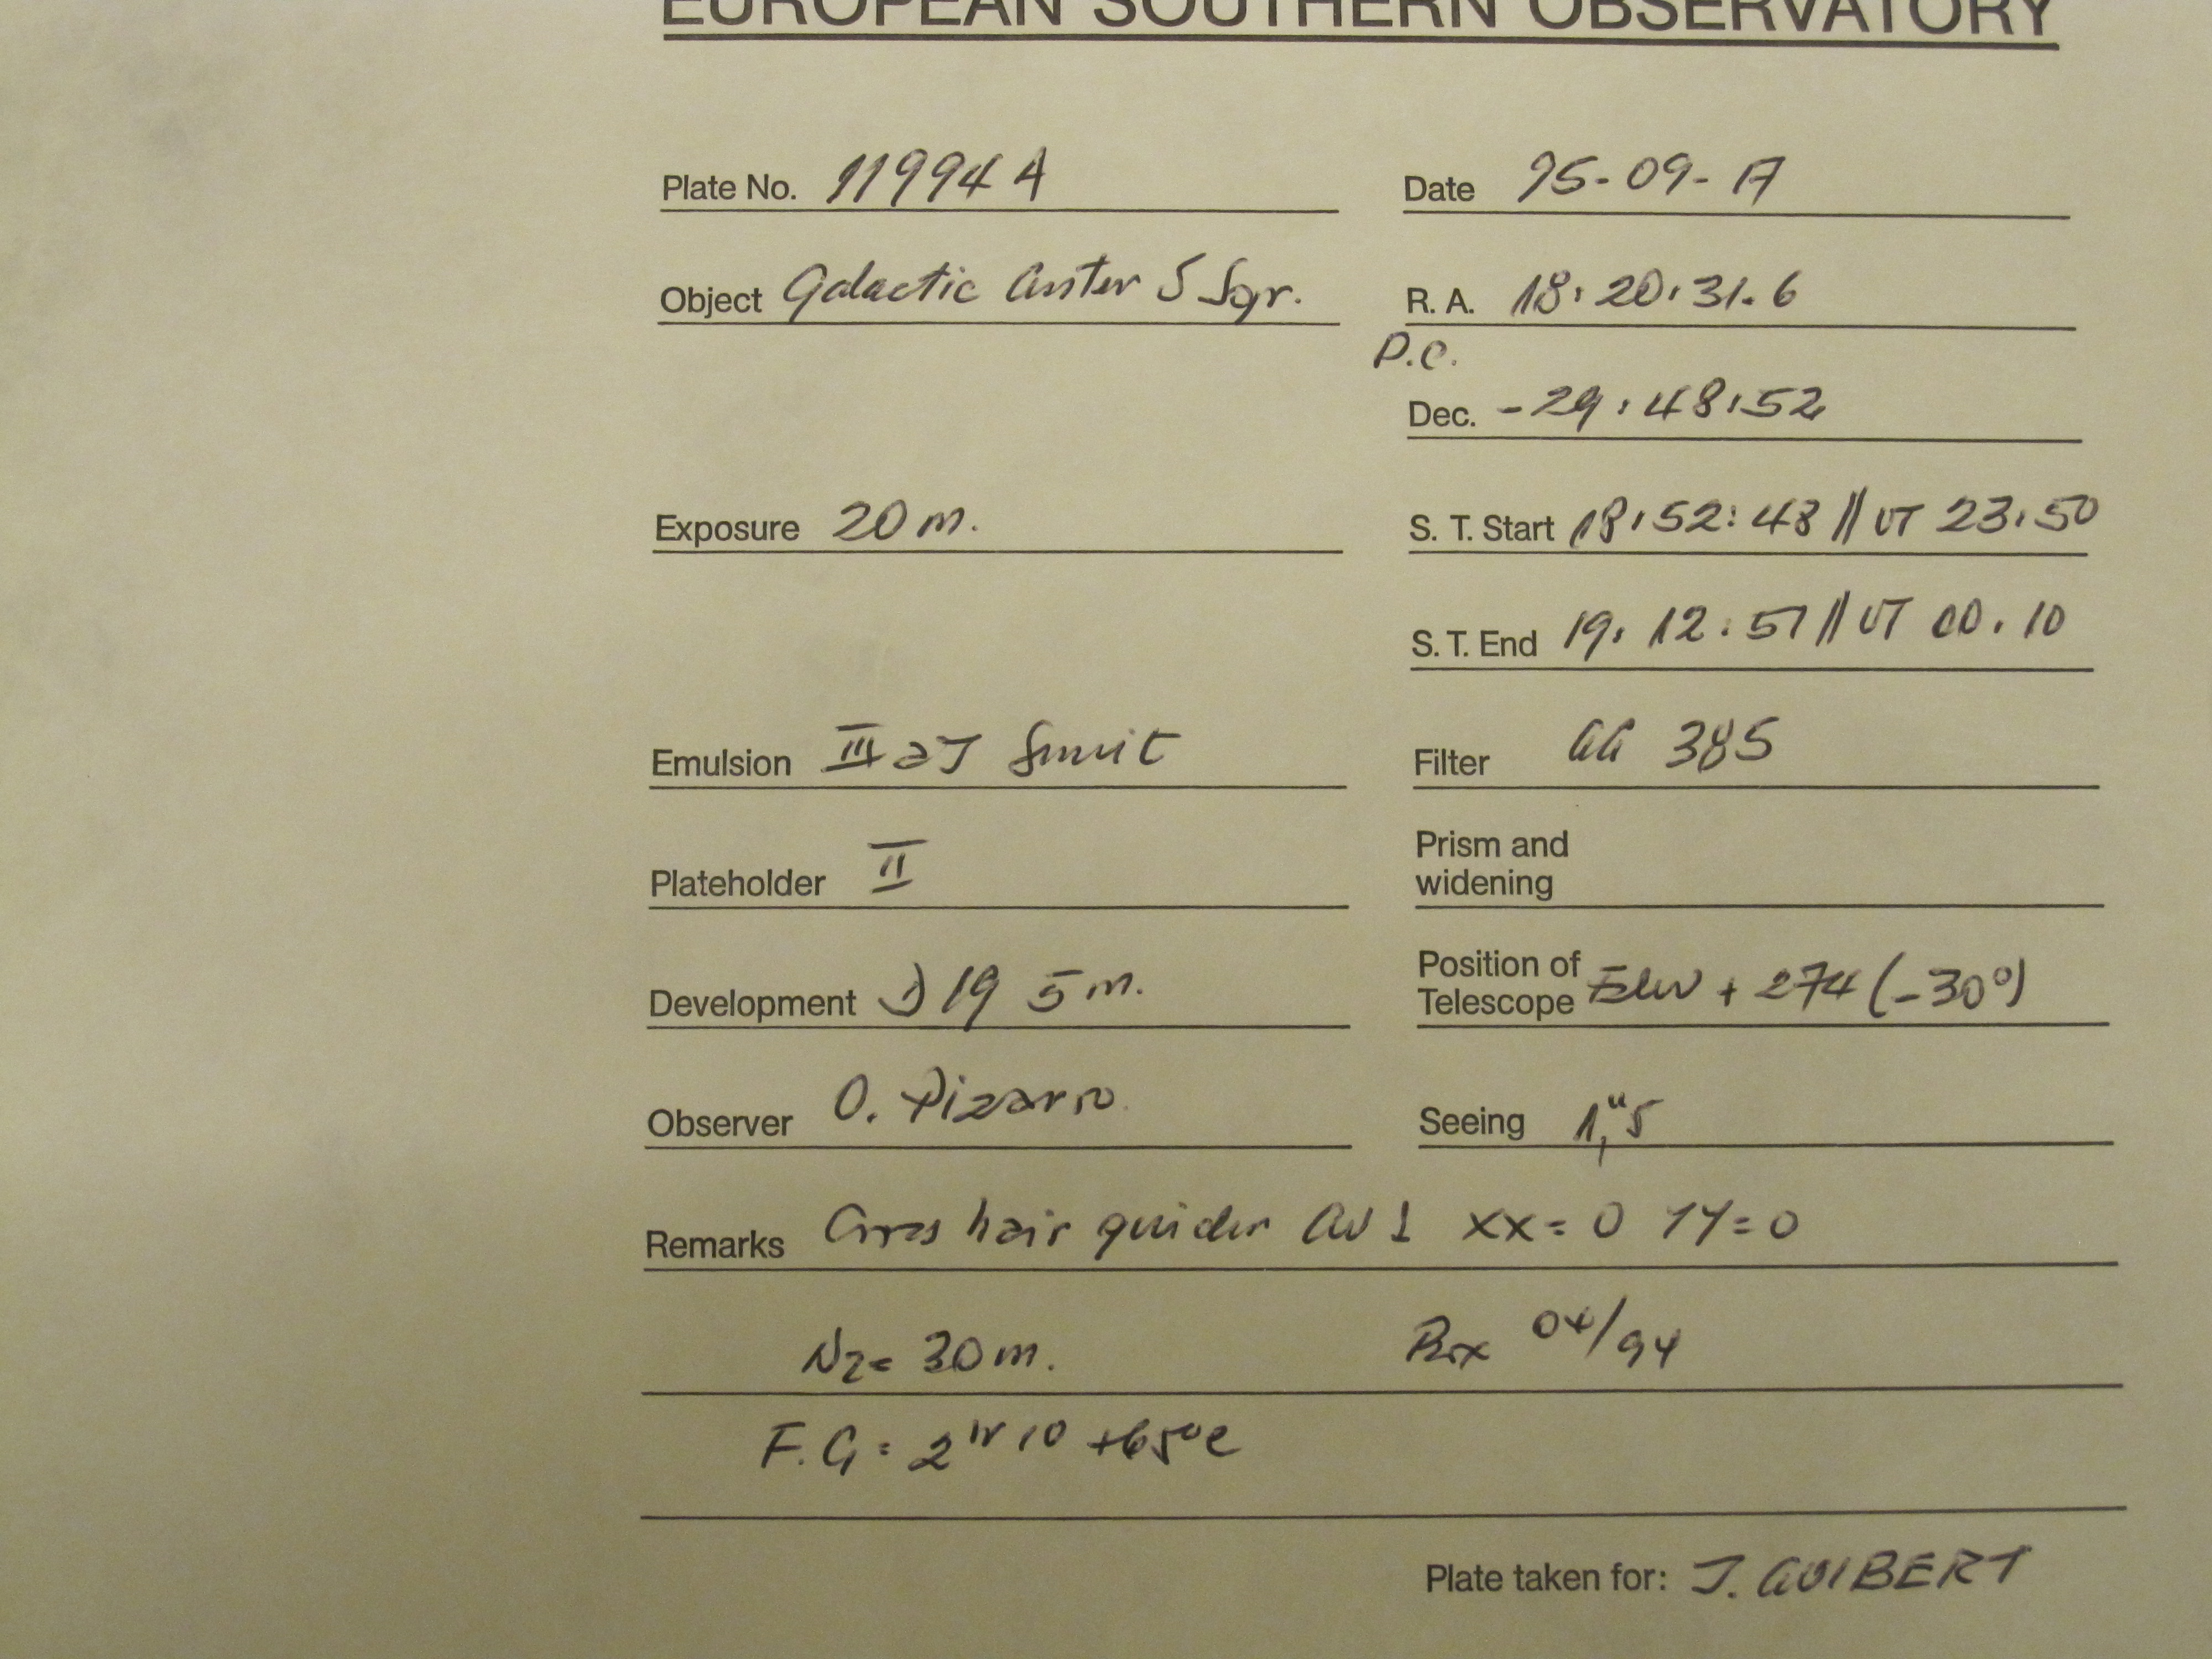 EUROPEAN SOUTHERN OBSERVATORY
Plate No. 11994 A Date 95-09-17
Object Galactic Cluster 5 Sgr. R. A. 18:20:31.6
P.C.
Dec. -29:48:52
Exposure 20 m. S. T. Start 18:52:48 // UT 23:50
S. T. End 19:12:51 // UT 00:10
Emulsion III aJ Filter GG 385
Plateholder II Prism and widening
Development D 19 5 m. Position of Telescope Elev + 274 (-30°)
Observer O. Pizarro Seeing 1,"5
Remarks Cross hair guider XX = 0 YY = 0
N2= 30 m. Box 04/94
F.G = 2 hr 10 +65°C
Plate taken for: J. GUIBERT